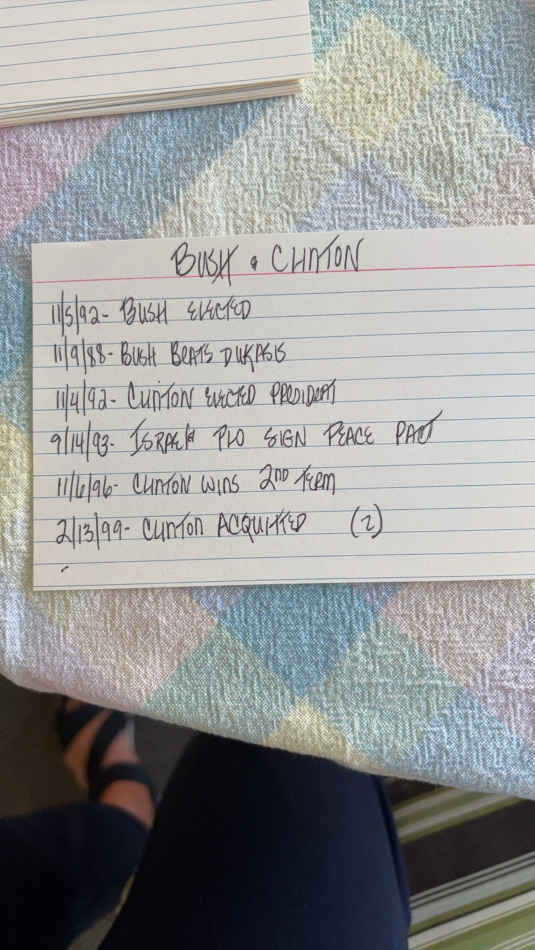 BUSH & CLINTON
11/5/92- BUSH ELECTED
11/9/88- BUSH BEATS DUKASIS
11/4/92- CLINTON ELECTED PRESIDENT
9/14/93- ISRAEL & PLO SIGN PEACE PACT
11/6/96- CLINTON WINS 2ND TERM
2/13/99- CLINTON ACQUITTED (2)